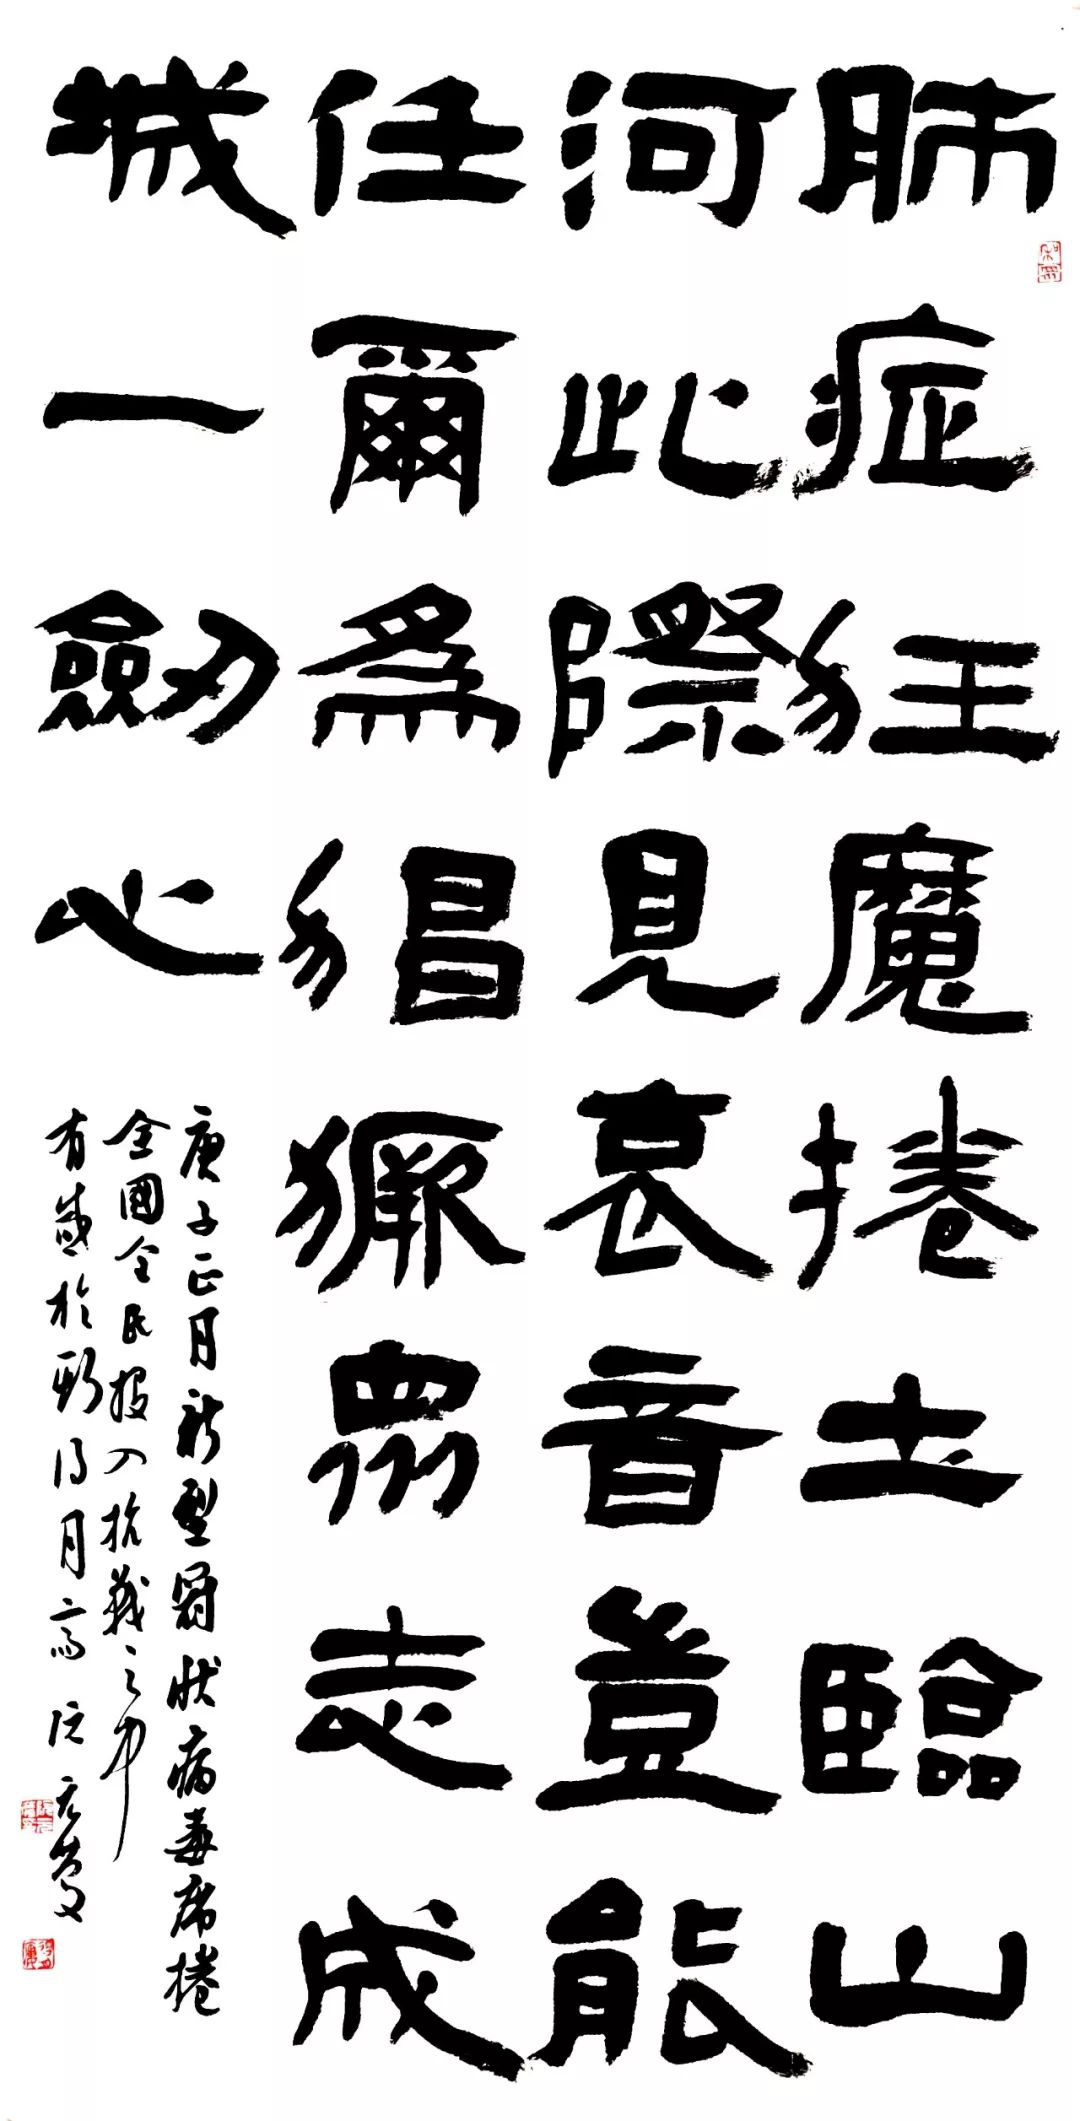 肺症狂魔捲土臨山
河此際見哀音豈能
任爾為猖獗眾志成
城一劍心
庚子正月新型冠狀病毒席捲
全國全民投入抗戰之中
有感於得月齋